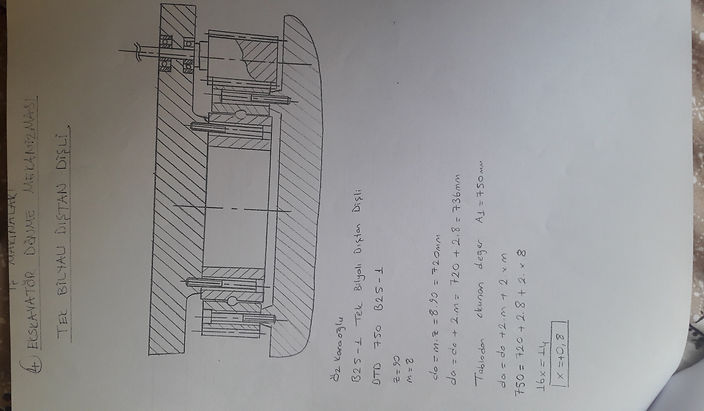 İŞ MAKİNALARI
4 EKSKAVATÖR DÖNME MEKANİZMASI
TEK BİLYALI DIŞTAN DİŞLİ
Öz Karaoğlu
B25-1 Tek Bilyalı Dıştan Dişli
DTD 750 B25-1
z=90
m=8
do=m.z=8.90=720mm
da=do+2.m=720+2.8=736mm
Tablodan okunan değer A1=750mm
da=do+2.m+2.x.m
750=720+2.8+2.x8
16x=14
x=+0,8